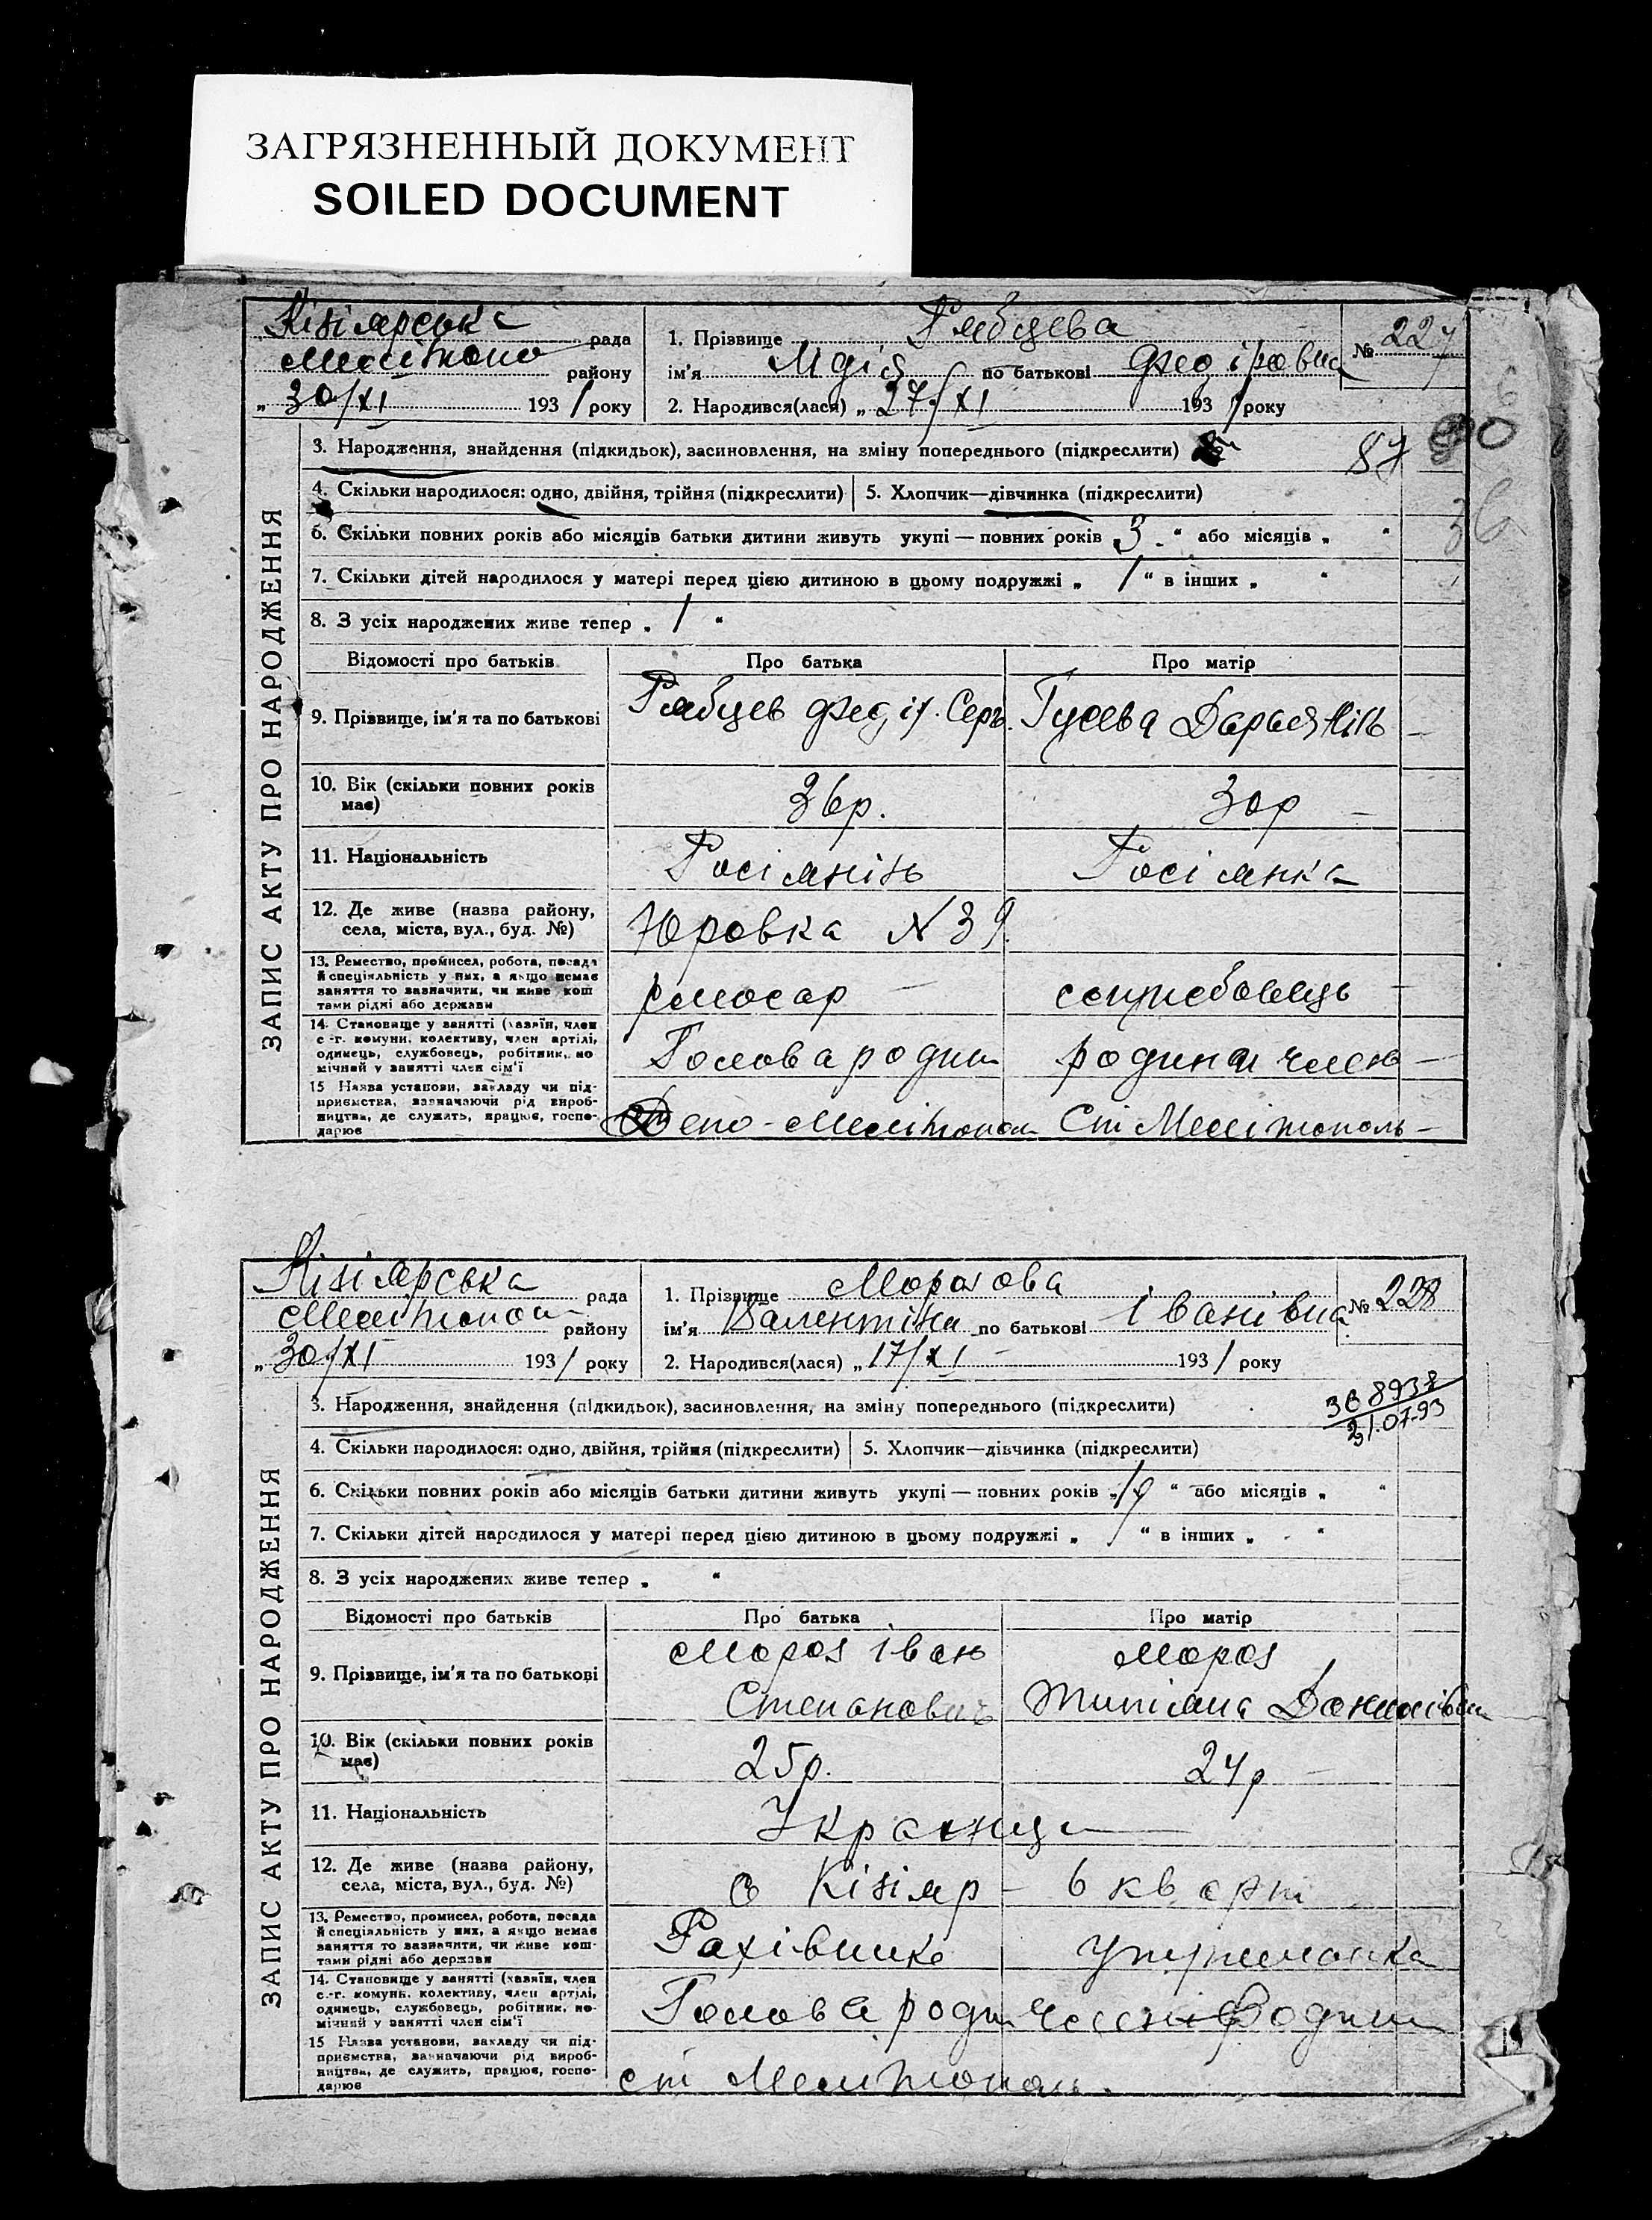 ЗАГРЯЗНЕННЫЙ ДОКУМЕНТ
SOILED DOCUMENT
Кізіярська рада
Мелітопо району
„ 30/XI 1931 року
1. Прізвище Рябцева
ім'я Лідія по батькові Федіровна
№ 227
2. Народився(лася) „ 27/XI 1931 року
ЗАПИС АКТУ ПРО НАРОДЖЕННЯ
3. Народження, знайдення (підкидьок), засиновлення, на зміну попереднього (підкреслити)
87
90
36
4. Скільки народилося: одно, двійня, трійня (підкреслити) 5. Хлопчик—дівчинка (підкреслити)
6. Скільки повних років або місяців батьки дитини живуть укупі — повних років „ 3 “ або місяців „ “
7. Скільки дітей народилося у матері перед цією дитиною в цьому подружжі „ 1 “ в інших „ “
8. З усіх народжених живе тепер „ 1 “
Відомості про батьків Про батька Про матір
9. Прізвище, ім'я та по батькові Рябцев Федір. Серг. Гусева Дарья
10. Вік (скільки повних років має) 36р. 30р
11. Національність Росіянінь Росіянка
12. Де живе (назва району, села, міста, вул., буд. №) Юровка № 39.
13. Ремество, промисел, робота, посада й спеціяльність у них, а якщо немає заняття то зазначити, чи живе коштами рідні або держави слюсар
14. Становище у занятті (хазяїн, член с.-г. комуни, колективу, член артілі, одинець, службовець, робітник, помічний у занятті член сім'ї Голова родин родини член
15 Назва установи, закладу чи підприємства, зазначаючи рід виробництва, де служить, працює, господарює Депо-Мелітополь Ст Мелітополь
Кізіярська рада
Мелітополь району
„ 30/XI 1931 року
1. Прізвище Морозова
ім'я Валентіна по батькові Іванівна
№ 228
2. Народився(лася) „ 17/XI 1931 року
ЗАПИС АКТУ ПРО НАРОДЖЕННЯ
3. Народження, знайдення (підкидьок), засиновлення, на зміну попереднього (підкреслити)
21.07.93
4. Скільки народилося: одно, двійня, трійня (підкреслити) 5. Хлопчик—дівчинка (підкреслити)
6. Скільки повних років або місяців батьки дитини живуть укупі — повних років „ “ або місяців „ “
7. Скільки дітей народилося у матері перед цією дитиною в цьому подружжі „ “ в інших „ - “
8. З усіх народжених живе тепер „ “
Відомості про батьків Про батька Про матір
9. Прізвище, ім'я та по батькові Мороз Іван Степановичь Мороз Титіяна
10. Вік (скільки повних років має) 25р. 24р
11. Національність Українці
12. Де живе (назва району, села, міста, вул., буд. №) с Кізіяр - 6 кварт
13. Ремество, промисел, робота, посада й спеціяльність у них, а якщо немає заняття то зазначити, чи живе коштами рідні або держави Рахівника утриманка
14. Становище у занятті (хазяїн, член с.-г. комуни, колективу, член артілі, одинець, службовець, робітник, помічний у занятті член сім'ї Голова родин член родини
15 Назва установи, закладу чи підприємства, зазначаючи рід виробництва, де служить, працює, господарює ст Мелітополь.